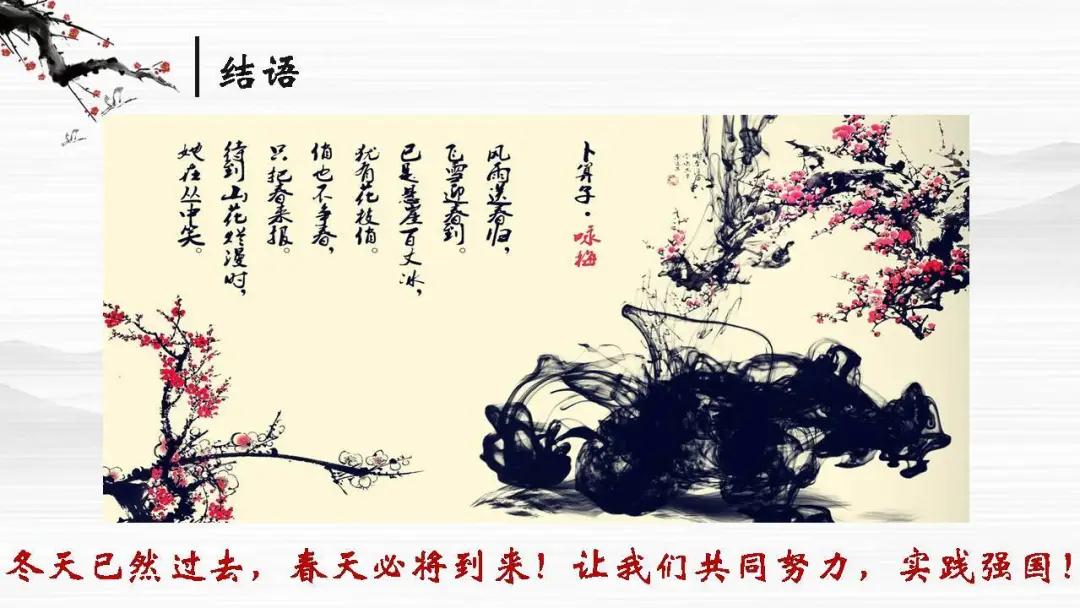 结语
卜算子·咏梅
风雨送春归，
飞雪迎春到。
已是悬崖百丈冰，
犹有花枝俏。
俏也不争春，
只把春来报。
待到山花烂漫时，
她在丛中笑。
冬天已然过去，春天必将到来！让我们共同努力，实践强国！